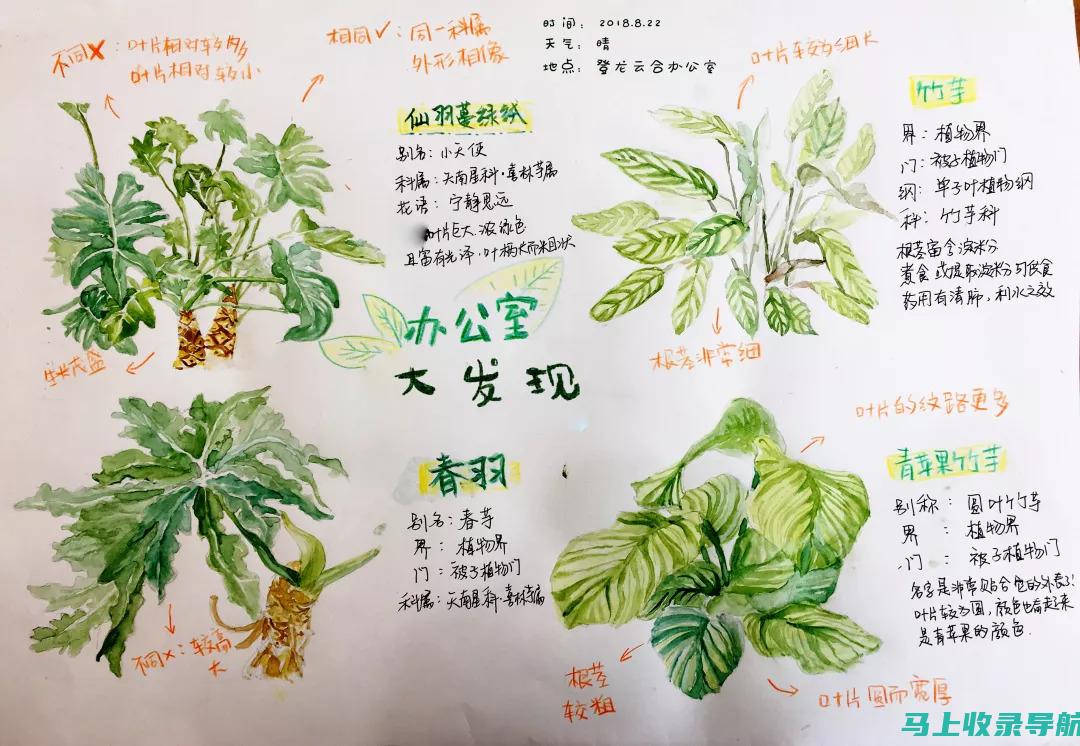 时间: 2018.8.22
天气: 晴
地点: 登龙云合办公室
不同✗: 叶片相对较多
叶片相对较小
相同✓: 同一科属
外形相像
仙羽蔓绿绒
别名: 小天使
科属: 天南星科·喜林芋属
花语: 宁静思远
叶片巨大.浓绿色
且富有光泽.叶柄长而粗状
生长茂盛
办公室
大发现
叶片较为细长
竹芋
界: 植物界
门: 被子植物门
纲: 单子叶植物纲
科: 竹芋科
根茎富含淀粉
煮食或提取淀粉可饮食
药用有清肺,利水之效
根茎非常细
春羽
别名: 春芋
界: 植物界
门: 被子植物门
科属: 天南星科·喜林芋属
不同✗: 较高
大
叶片的纹路更多
青苹果竹芋
别称: 圆叶竹芋
界: 植物界
门: 被子植物门
名字是非常贴合它的外表了!
叶片较为圆,颜色也看起来
是青苹果的颜色.
根茎
较粗
叶片圆而宽厚
马上收录导航